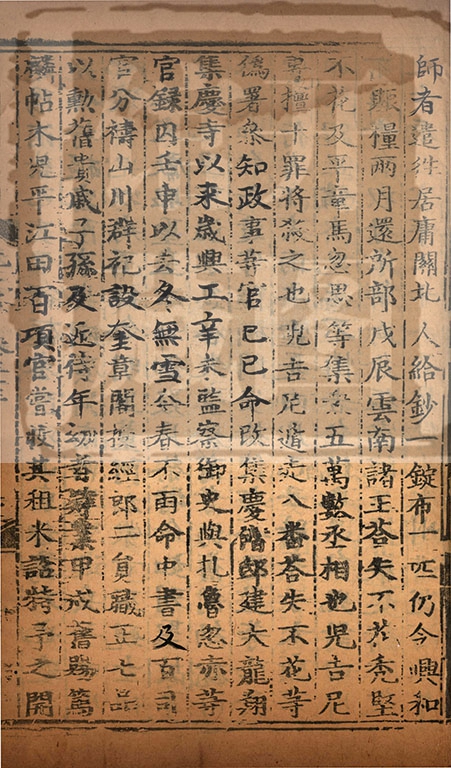 師者遣徃居庸關北人給鈔一錠布一匹仍令興和
賑糧兩月還所部戊辰雲南諸王荅失不花禿堅
不花及平章馬忽思等集衆五萬數丞相也兒吉尼
專擅十罪將殺之也兒吉尼遁走八番荅失不花等
僞署叅知政事等官己巳命改集慶潛邸建大龍翔
集慶寺以来歲興工辛未監察御史與扎魯忽赤等
官録囚壬申以去冬無雪今春不雨命中書及百司
官分禱山川群祀設奎章閣授經郎二員職正七品
以勲舊貴戚子孫及近侍年幼者肄業甲戌舊賜篤
麟帖木兒平江田百頃官嘗收其租米詔特予之開